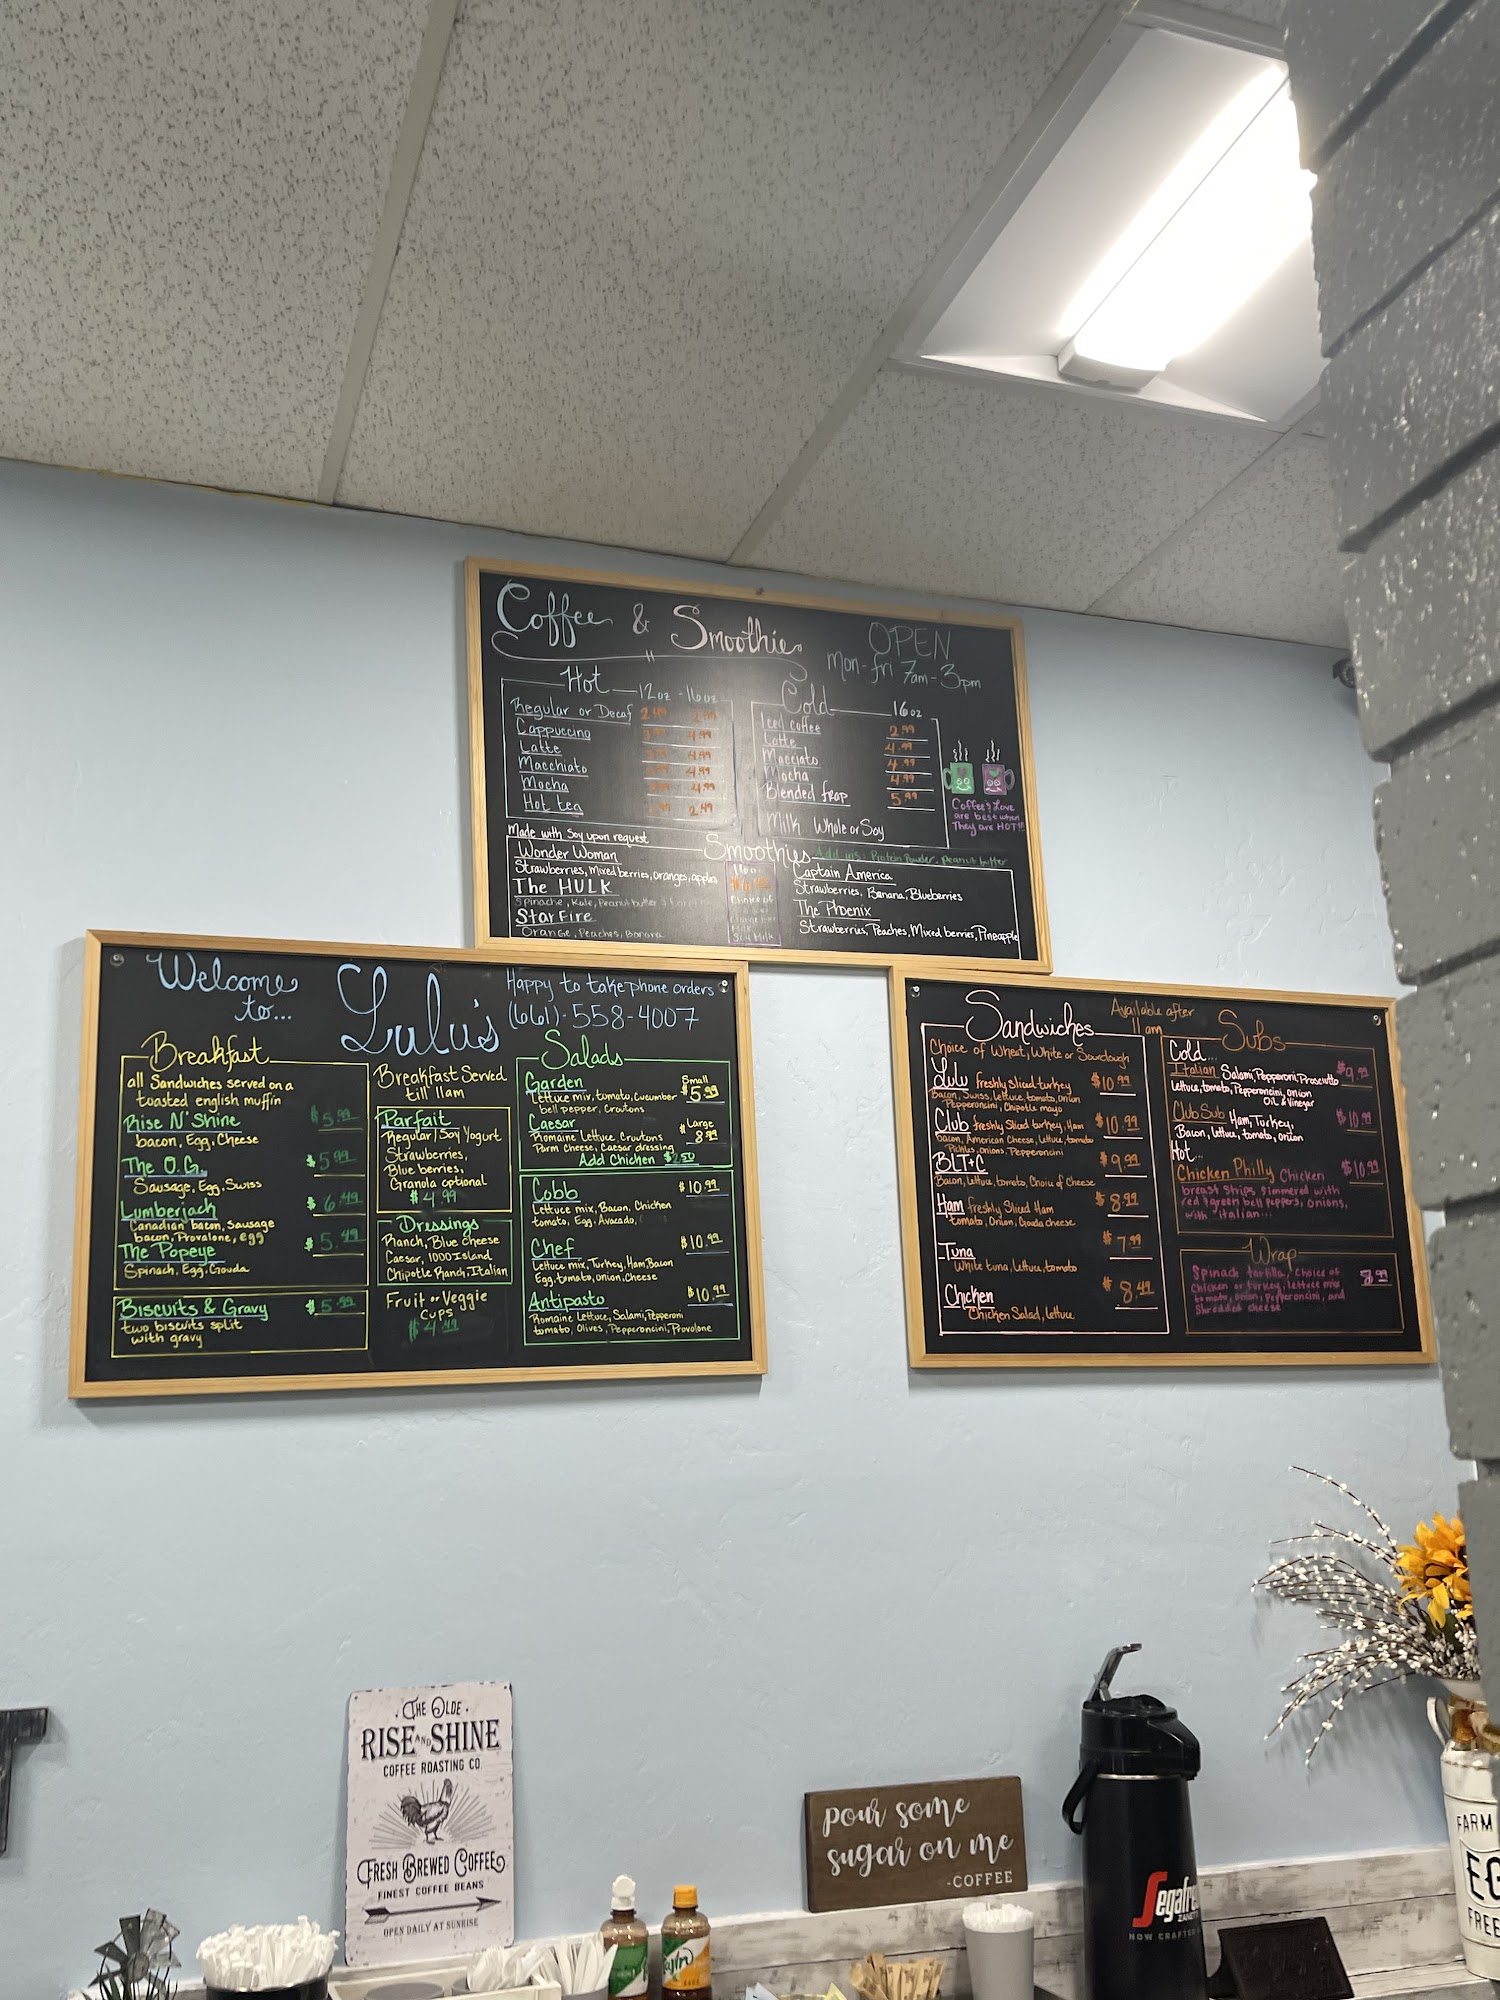 Coffee & Smoothies
OPEN
Mon-Fri 7am-3pm
Hot 12oz - 16oz
Regular or Decaf 2.49 2.99
Cappuccino 4.99
Latte 4.99
Macchiato 4.99
Mocha 4.99
Hot tea 2.49
Made with Soy upon request
Cold 16oz
Iced coffee 2.99
Latte 4.99
Macciato 4.99
Mocha 4.99
Blended frap 5.99
Milk Whole or Soy
Coffee & Love
are best when
They are HOT!!
Smoothies Add ins: Protein Powder, Peanut butter
Wonder Woman
Strawberries, Mixed berries, oranges, apples
The HULK
Spinache, Kale, Peanut butter
StarFire
Orange, Peaches, Banana
16oz
Choice of
Milk
Soy Milk
Captain America
Strawberries, Banana, Blueberries
The Phoenix
Strawberries, Peaches, Mixed berries, Pineapple
Welcome
to...
Lulu's
Happy to take phone orders
(661)-558-4007
Breakfast
all Sandwiches served on a
toasted english muffin
Rise N' Shine $5.99
bacon, Egg, Cheese
The O.G. $5.99
Sausage, Egg, Swiss
Lumberjack $6.49
Canadian bacon, Sausage
bacon, Provalone, egg
The Popeye $5.49
Spinach, Egg, Gouda
Biscuits & Gravy $5.99
two biscuits split
with gravy
Breakfast Served
till 11am
Parfait
Regular/Soy Yogurt
Strawberries,
Blueberries,
Granola optional
$4.99
Dressings
Ranch, Blue cheese
Caesar, 1000 Island
Chipotle Ranch, Italian
Fruit or Veggie
Cups
$4.49
Salads
Garden Small
Lettuce mix, tomato, cucumber $5.99
bell pepper, croutons
Caesar Large
Romaine Lettuce, Croutons $8.99
Parm Cheese, Caesar dressing
Add Chicken $2.50
Cobb $10.99
Lettuce mix, Bacon, Chicken
tomato, Egg, Avacado,
Chef $10.99
Lettuce mix, Turkey, Ham, Bacon
Egg, tomato, onion, cheese
Antipasto $10.99
Romaine Lettuce, Salami, Pepperoni
tomato, Olives, Pepperoncini, Provolone
Sandwiches
Available after
11am
Choice of Wheat, White or Sourdough
Lulu freshly sliced turkey $10.99
Bacon, Swiss, lettuce, tomato, onion
Pepperoncini, Chipotle mayo
Club freshly Sliced turkey, Ham $10.99
bacon, American Cheese, lettuce, tomato
Pickles, onions, Pepperoncini
BLT+C $9.99
Bacon, lettuce, tomato, Choice of cheese
Ham freshly Sliced Ham $8.99
tomato, Onion, Gouda cheese
Tuna $7.99
White tuna, lettuce, tomato
Chicken $8.49
Chicken Salad, lettuce
Subs
Cold...
Italian Salami, Pepperoni, Prosciutto $9.99
lettuce, tomato, Pepperoncini, onion
Oil & Vinegar
Club Sub Ham, Turkey, $10.99
Bacon, lettuce, tomato, onion
Hot...
Chicken Philly Chicken $10.99
breast strips simmered with
red & green bell peppers, onions,
with Italian...
Wrap
Spinach tortilla, Choice of $8.99
Chicken or turkey, lettuce mix
tomato, onion, Pepperoncini, and
Shredded cheese
THE OLDE
RISE AND SHINE
COFFEE ROASTING CO
FRESH BREWED COFFEE
FINEST COFFEE BEANS
OPEN DAILY AT SUNRISE
pour some
sugar on me
-COFFEE
Segafr
ZANET
NOW CRAFT
FARM
EG
FREE